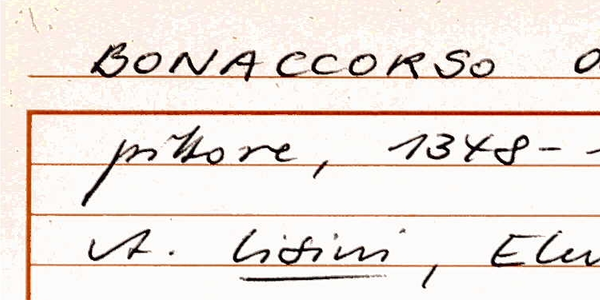 BONACCORSO
pittore, 1348-
A. Lisini,